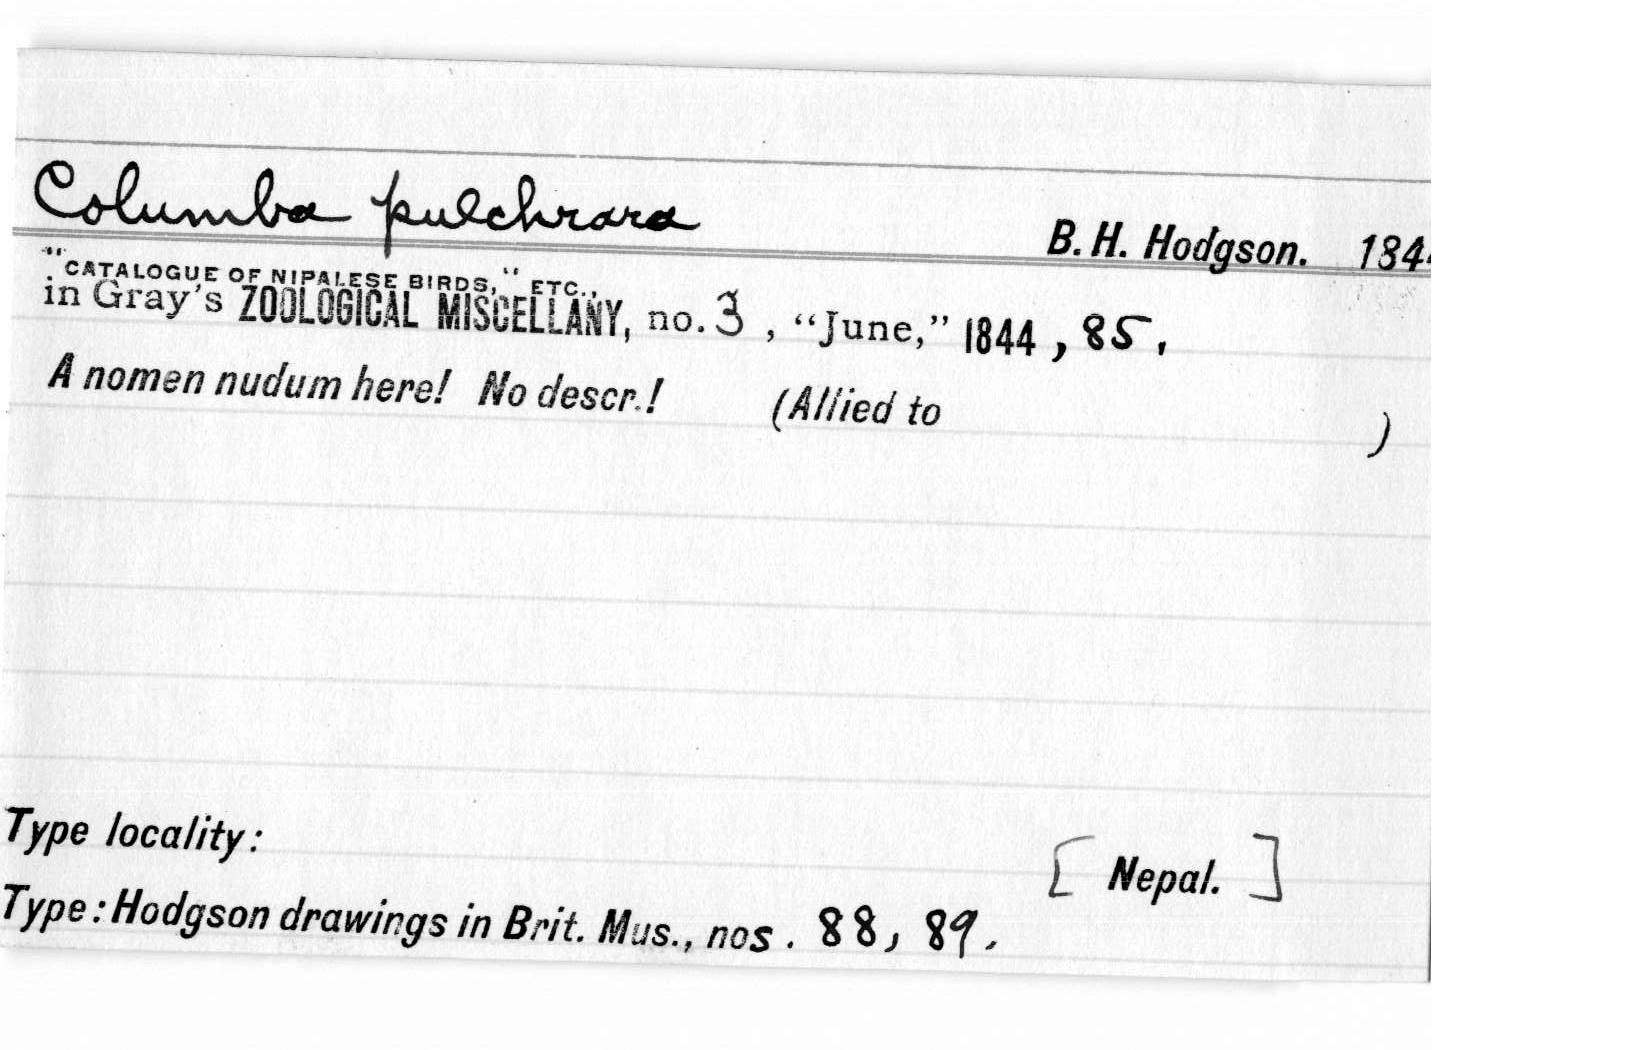 Columba pulchrara B. H. Hodgson. 184
"CATALOGUE OF NIPALESE BIRDS," ETC.,
in Gray's ZOOLOGICAL MISCELLANY, no. 3, "June," 1844, 85.
A nomen nudum here! No descr.! (Allied to )
Type locality: [Nepal.]
Type: Hodgson drawings in Brit. Mus., nos. 88, 89.